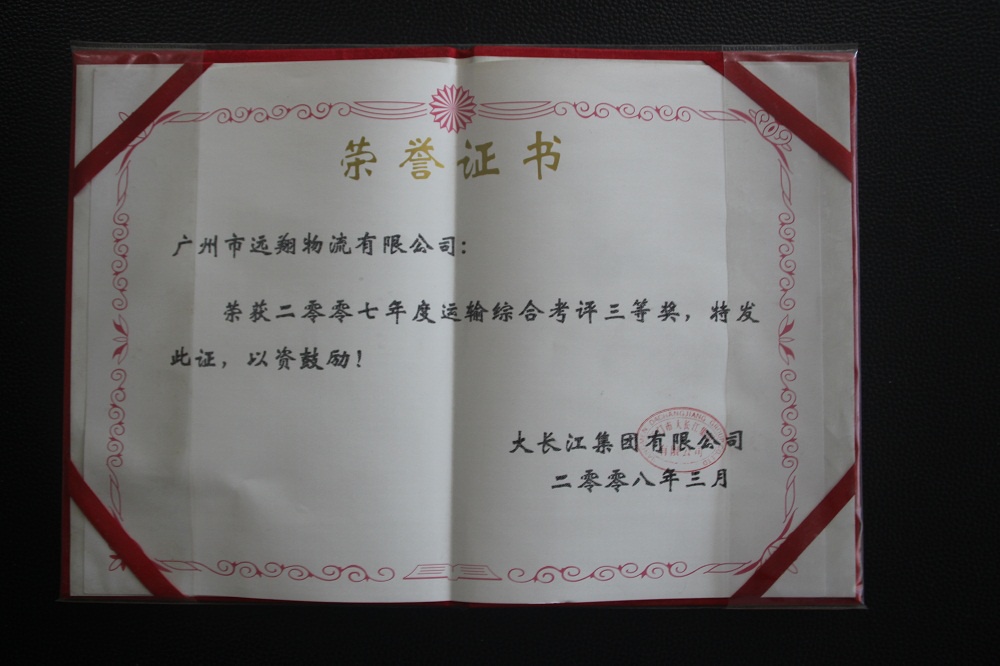 荣誉证书
广州市远翔物流有限公司：
荣获二零零七年度运输综合考评三等奖，特发
此证，以资鼓励！
大长江集团有限公司
二零零八年三月